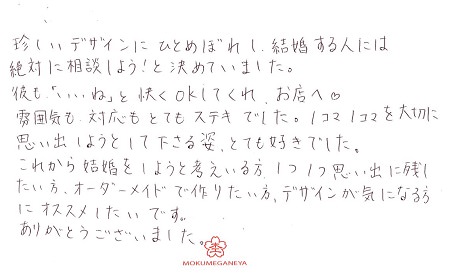 珍しいデザインにひとめぼれし、結婚する人には
絶対に相談しよう!と決めていました。
彼も「いいね」と快くOKしてくれ、お店へ♡
雰囲気も、対応もとてもステキでした。1コマ1コマを大切に
思い出しようとして下さる姿、とても好きでした。
これから結婚をしようと考えいる方、1つ1つ思い出に残し
たい方、オーダーメイドで作りたい方、デザインが気になる方
にオススメしたいです。
ありがとうございました。
MOKUMEGANEYA